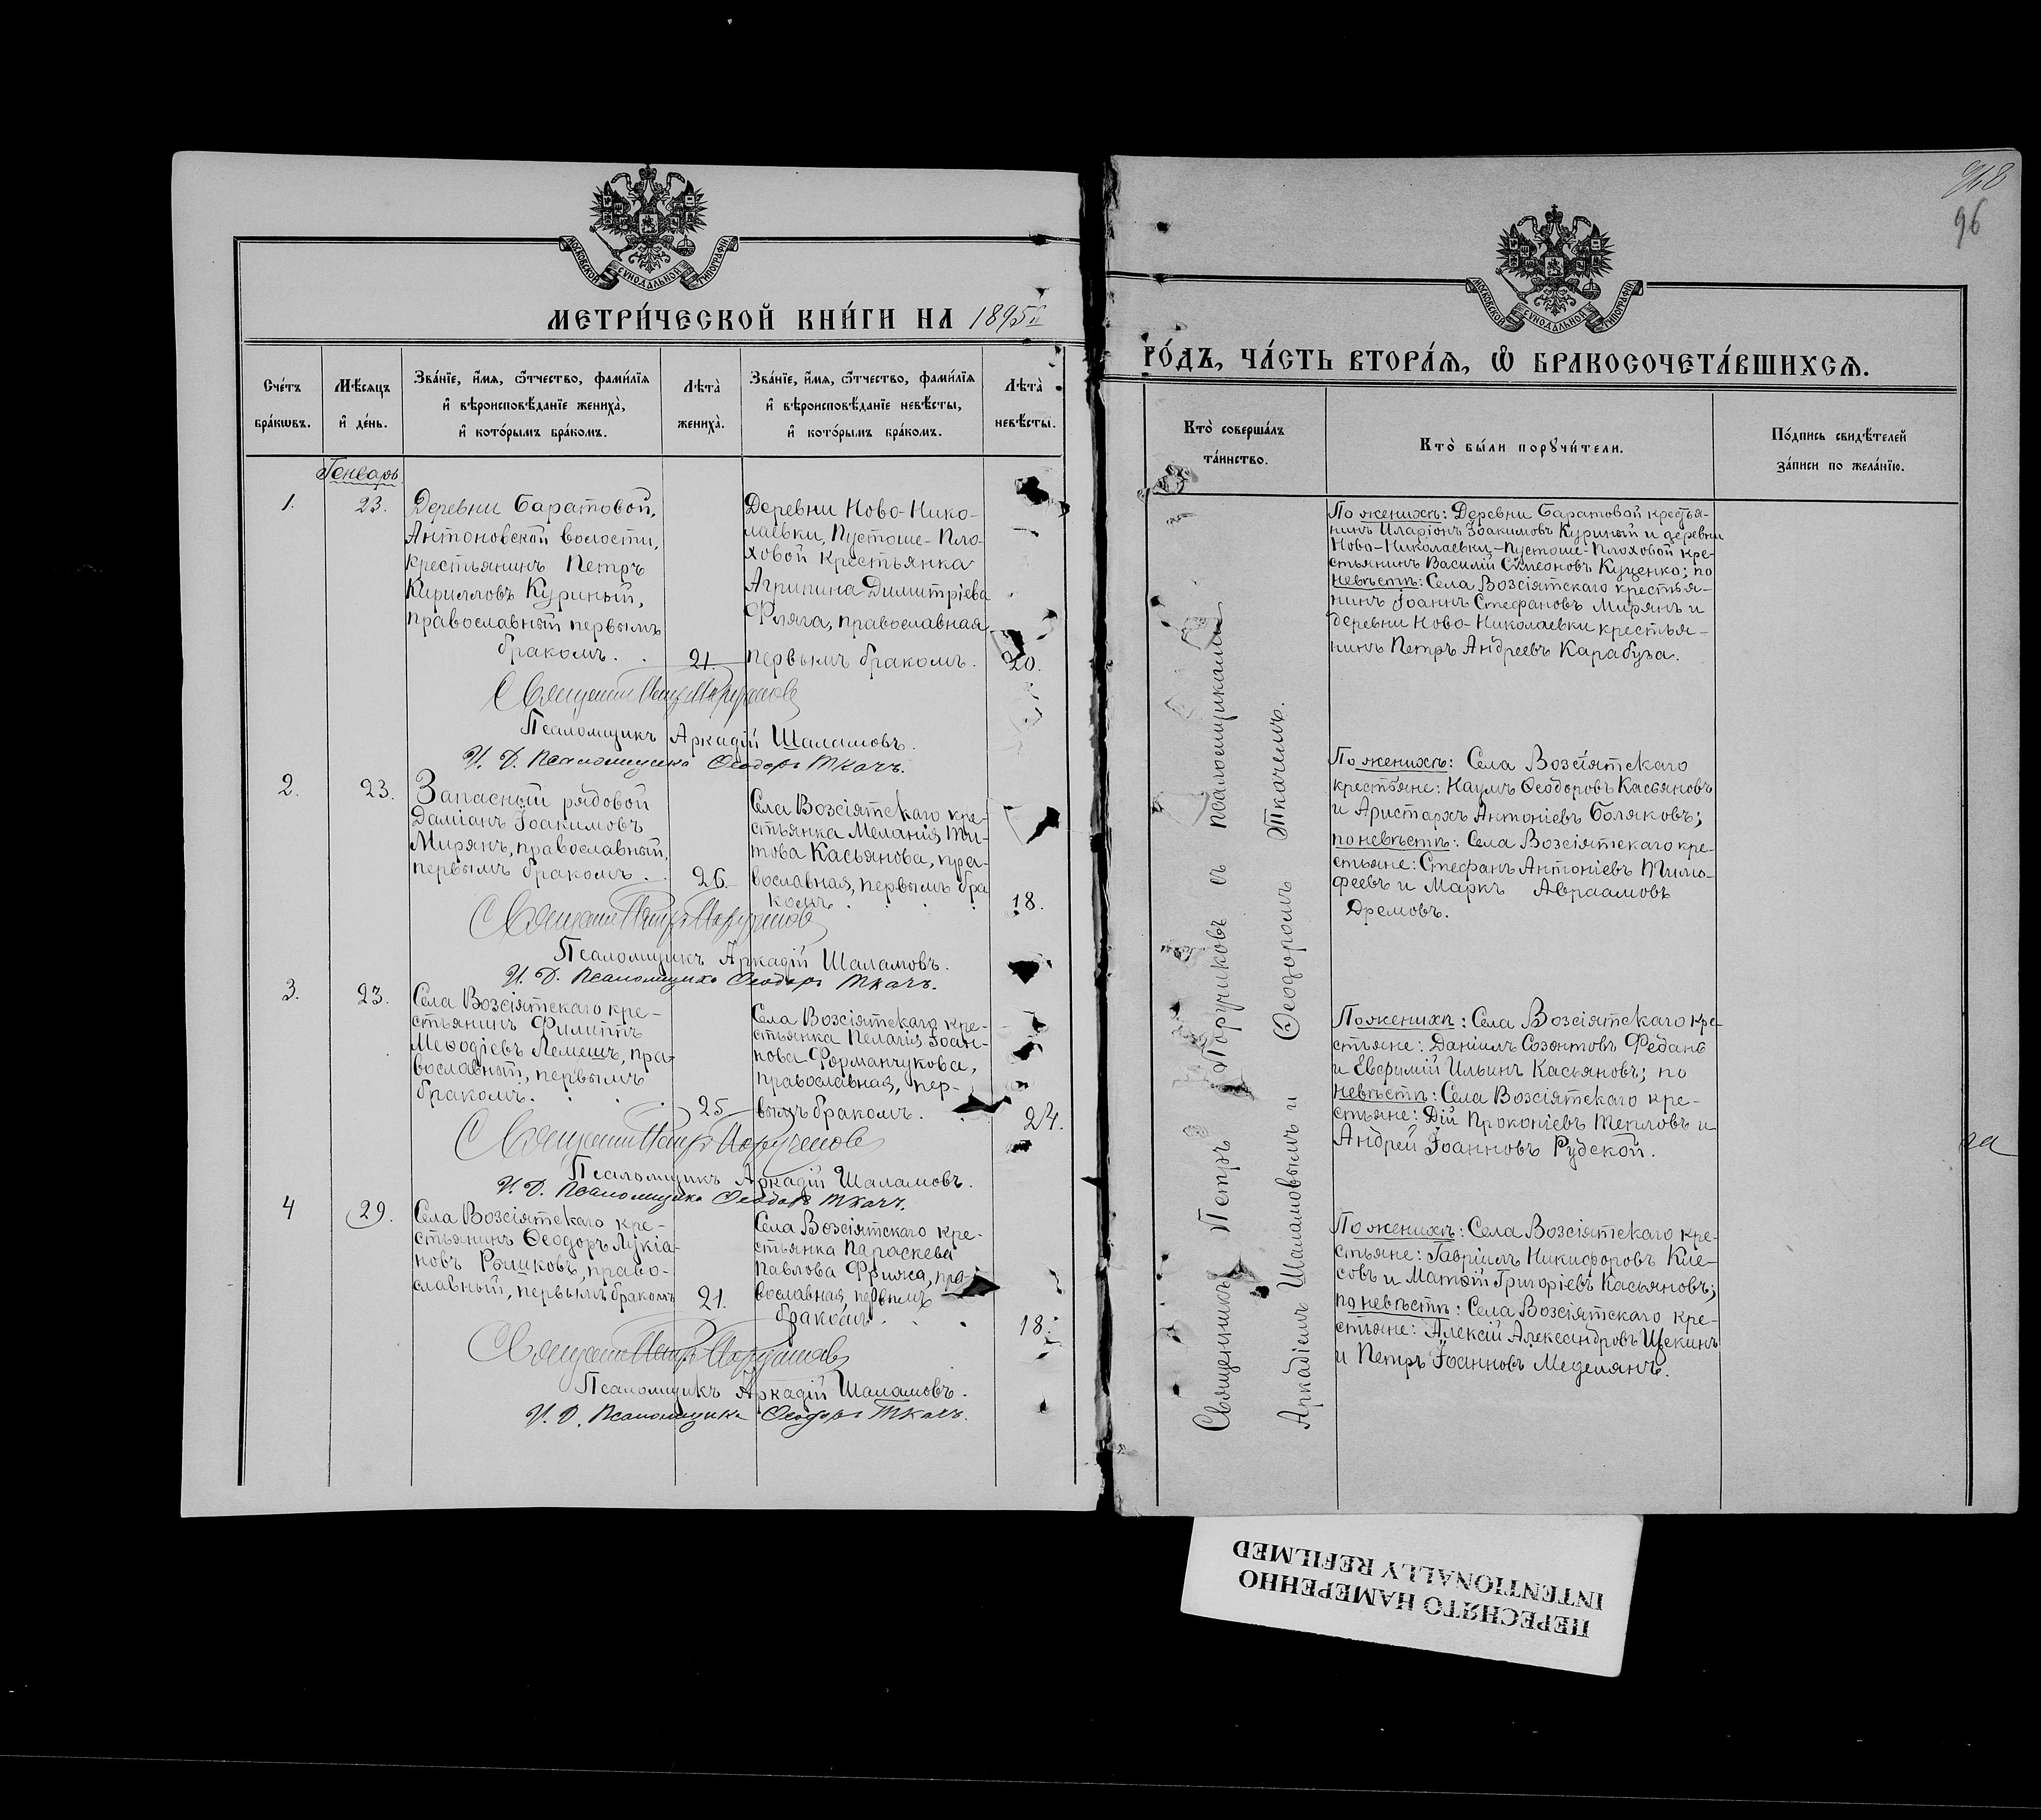 МОСКОВСКОЙ СѴНОДАЛЬНОЙ ТИПОГРАФИИ
МЕТРИ́ЧЕСКОЙ КНИ́ГИ НА 1895й
Сче́тъ бра́кѡвъ.
Мѣ́сяцъ и҆ де́нь.
Зва́нїе, и҆́мя, ѻ҆́тчество, фами́лїя
и҆ вѣроисповѣ́данїе жениха̀,
и҆ кото́рымъ бра́комъ.
Лѣта̀ жениха̀.
Зва́нїе, и҆́мя, ѻ҆́тчество, фами́лїя
и҆ вѣроисповѣ́данїе невѣ́сты,
и҆ кото́рымъ бра́комъ.
Лѣта̀ невѣ́сты.
Генварь
1. 23.
Деревни Баратовой,
Антоновской волости,
крестьянинъ Петръ
Кирилловъ Куриный,
православный первымъ
бракомъ. 21.
Деревни Ново-Нико-
лаевки, Пустоше-Пло-
ховой крестьянка
Агрипина Димитріева
Фляга, православная
первымъ бракомъ. 20.
Священникъ Петръ Поручиковъ
Псаломщикъ Аркадій Шаламовъ.
И. Д. Псаломщика Ѳеодоръ Ткачъ.
2. 23.
Запасный рядовой
Даміанъ Іоакимовъ
Мирянъ, православный,
первымъ бракомъ. 26.
Села Возсіятскаго кре-
стьянка Меланія Ти-
това Касьянова, пра-
вославная, первымъ бра
комъ. 18.
Священникъ Петръ Поручиковъ
Псаломщикъ Аркадій Шаламовъ.
И. Д. Псаломщика Ѳеодоръ Ткачъ.
3. 23.
Села Возсіятскаго кре-
стьянинъ Филиппъ
Меѳодіевъ Лемешъ, пра-
вославный, первымъ
бракомъ. 25
Села Возсіятскаго кре-
стьянка Пелагія Іоан-
нова Форманчукова,
православная, пер-
вымъ бракомъ. 24.
Священникъ Петръ Поручиковъ
Псаломщикъ Аркадій Шаламовъ.
И. Д. Псаломщика Ѳеодоръ Ткачъ.
4 29.
Села Возсіятскаго кре-
стьянинъ Ѳеодоръ Лукіа-
новъ Рышковъ, право-
славный, первымъ бракомъ 21.
Села Возсіятскаго кре-
стьянка Параскева
Павлова Фрижа, пра-
вославная, первымъ
бракомъ. 18.
Священникъ Петръ Поручиковъ
Псаломщикъ Аркадій Шаламовъ.
И. Д. Псаломщика Ѳеодоръ Ткачъ.
96
МОСКОВСКОЙ СѴНОДАЛЬНОЙ ТИПОГРАФИИ
ГО́ДЪ, ЧА́СТЬ ВТОРА́Я, Ѡ҆ БРАКОСОЧЕТА́ВШИХСѦ.
Кто̀ соверша́лъ
та́инство.
Кто̀ бы́ли порꙋчи́тели.
По́дпись свидѣ́телей
за́писи по жела́нїю.
Священникъ Петръ Поручиковъ съ псаломщиками
Аркадіемъ Шаламовымъ и Ѳеодоромъ Ткачемъ.
По женихѣ: Деревни Баратовой крестья-
нинъ Иларіонъ Іоакимовъ Куриный и деревни
Ново-Николаевки-Пустоше-Плоховой кре-
стьянинъ Василій Сѵмеоновъ Куценко; по
невѣстѣ: Села Возсіятскаго крестья-
нинъ Іоаннъ Стефановъ Мирянъ и
деревни Ново-Николаевки крестья-
нинъ Петръ Андреевъ Карабуза.
По женихѣ: Села Возсіятскаго
крестьяне: Наумъ Ѳеодоровъ Касьяновъ
и Аристархъ Антоніевъ Боляковъ;
по невѣстѣ: Села Возсіятскаго кре-
стьяне: Стефанъ Антоніевъ Тимо-
феевъ и Маркъ Авраамовъ
Дремовъ.
По женихѣ: Села Возсіятскаго кре-
стьяне: Даніилъ Созонтовъ Феданъ
и Евфимій Ильинъ Касьяновъ; по
невѣстѣ: Села Возсіятскаго кре-
стьяне: Дій Прокопіевъ Тепловъ и
Андрей Іоанновъ Рудской.
По женихѣ: Села Возсіятскаго кре-
стьяне: Гавріилъ Никифоровъ Кие-
совъ и Матѳій Григоріевъ Касьяновъ;
по невѣстѣ: Села Возсіятскаго кре-
стьяне: Алексій Александровъ Щекинъ
и Петръ Іоанновъ Меделянъ.
ПЕРЕСНЯТО НАМЕРЕННО
INTENTIONALLY REFILMED